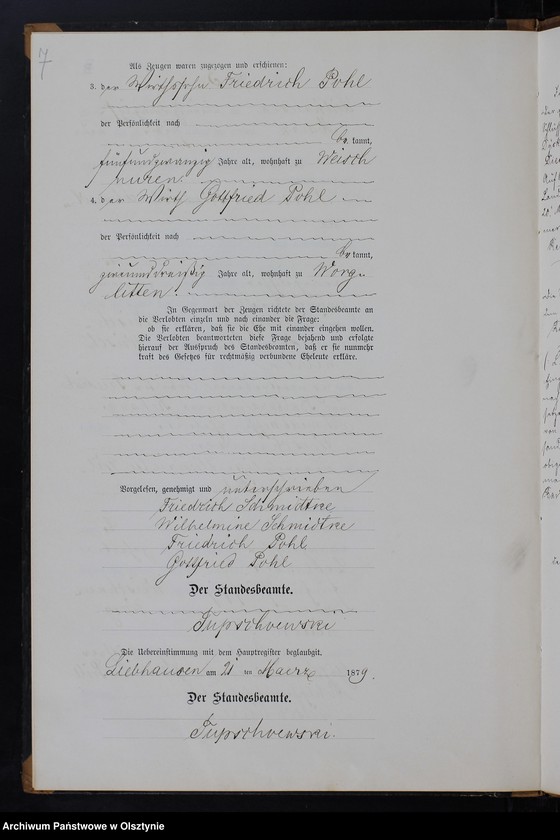 7
Als Zeugen waren zugezogen und erschienen:
3. der Wirthssohn Friedrich Pohl
der Persönlichkeit nach
be kannt,
fünfundzwanzig Jahre alt, wohnhaft zu Weisch
nuren.
4. der Wirth Gottfried Pohl
der Persönlichkeit nach
be kannt,
zweiunddreißig Jahre alt, wohnhaft zu Worg-
litten.
In Gegenwart der Zeugen richtete der Standesbeamte an
die Verlobten einzeln und nach einander die Frage:
ob sie erklären, daß sie die Ehe mit einander eingehen wollen.
Die Verlobten beantworteten diese Frage bejahend und erfolgte
hierauf der Ausspruch des Standesbeamten, daß er sie nunmehr
kraft des Gesetzes für rechtmäßig verbundene Eheleute erkläre.
Vorgelesen, genehmigt und unterschrieben
Friedrich Schmidtke
Wilhelmine Schmidtke
Friedrich Pohl
Gottfried Pohl
Der Standesbeamte.
Die Uebereinstimmung mit dem Hauptregister beglaubigt.
Liebhausen am 21 ten Maerz 1879.
Der Standesbeamte.
Archiwum Państwowe w Olsztynie